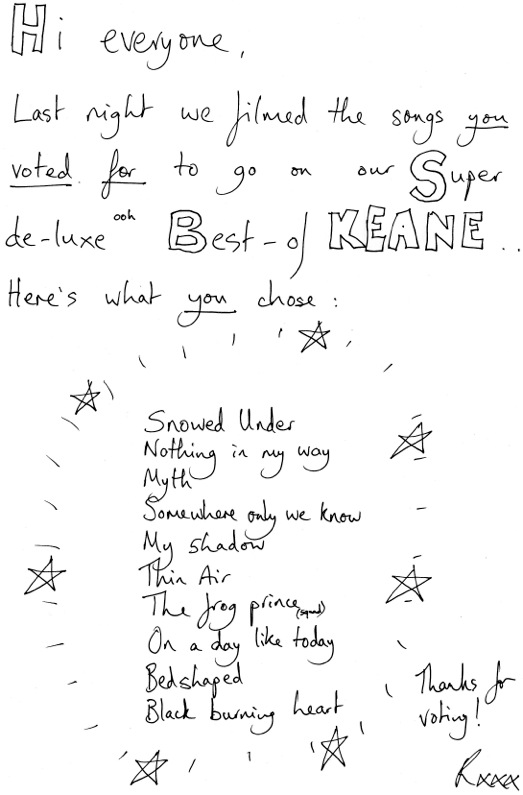 Hi everyone,
Last night we filmed the songs you
voted for to go on our Super
de-luxe ooh Best-of KEANE..
Here's what you chose:
Snowed Under
Nothing in my way
Myth
Somewhere only we know
My shadow
Thin Air
The frog prince
On a day like today
Bedshaped
Black burning heart
Thanks for
voting!
Rxxx